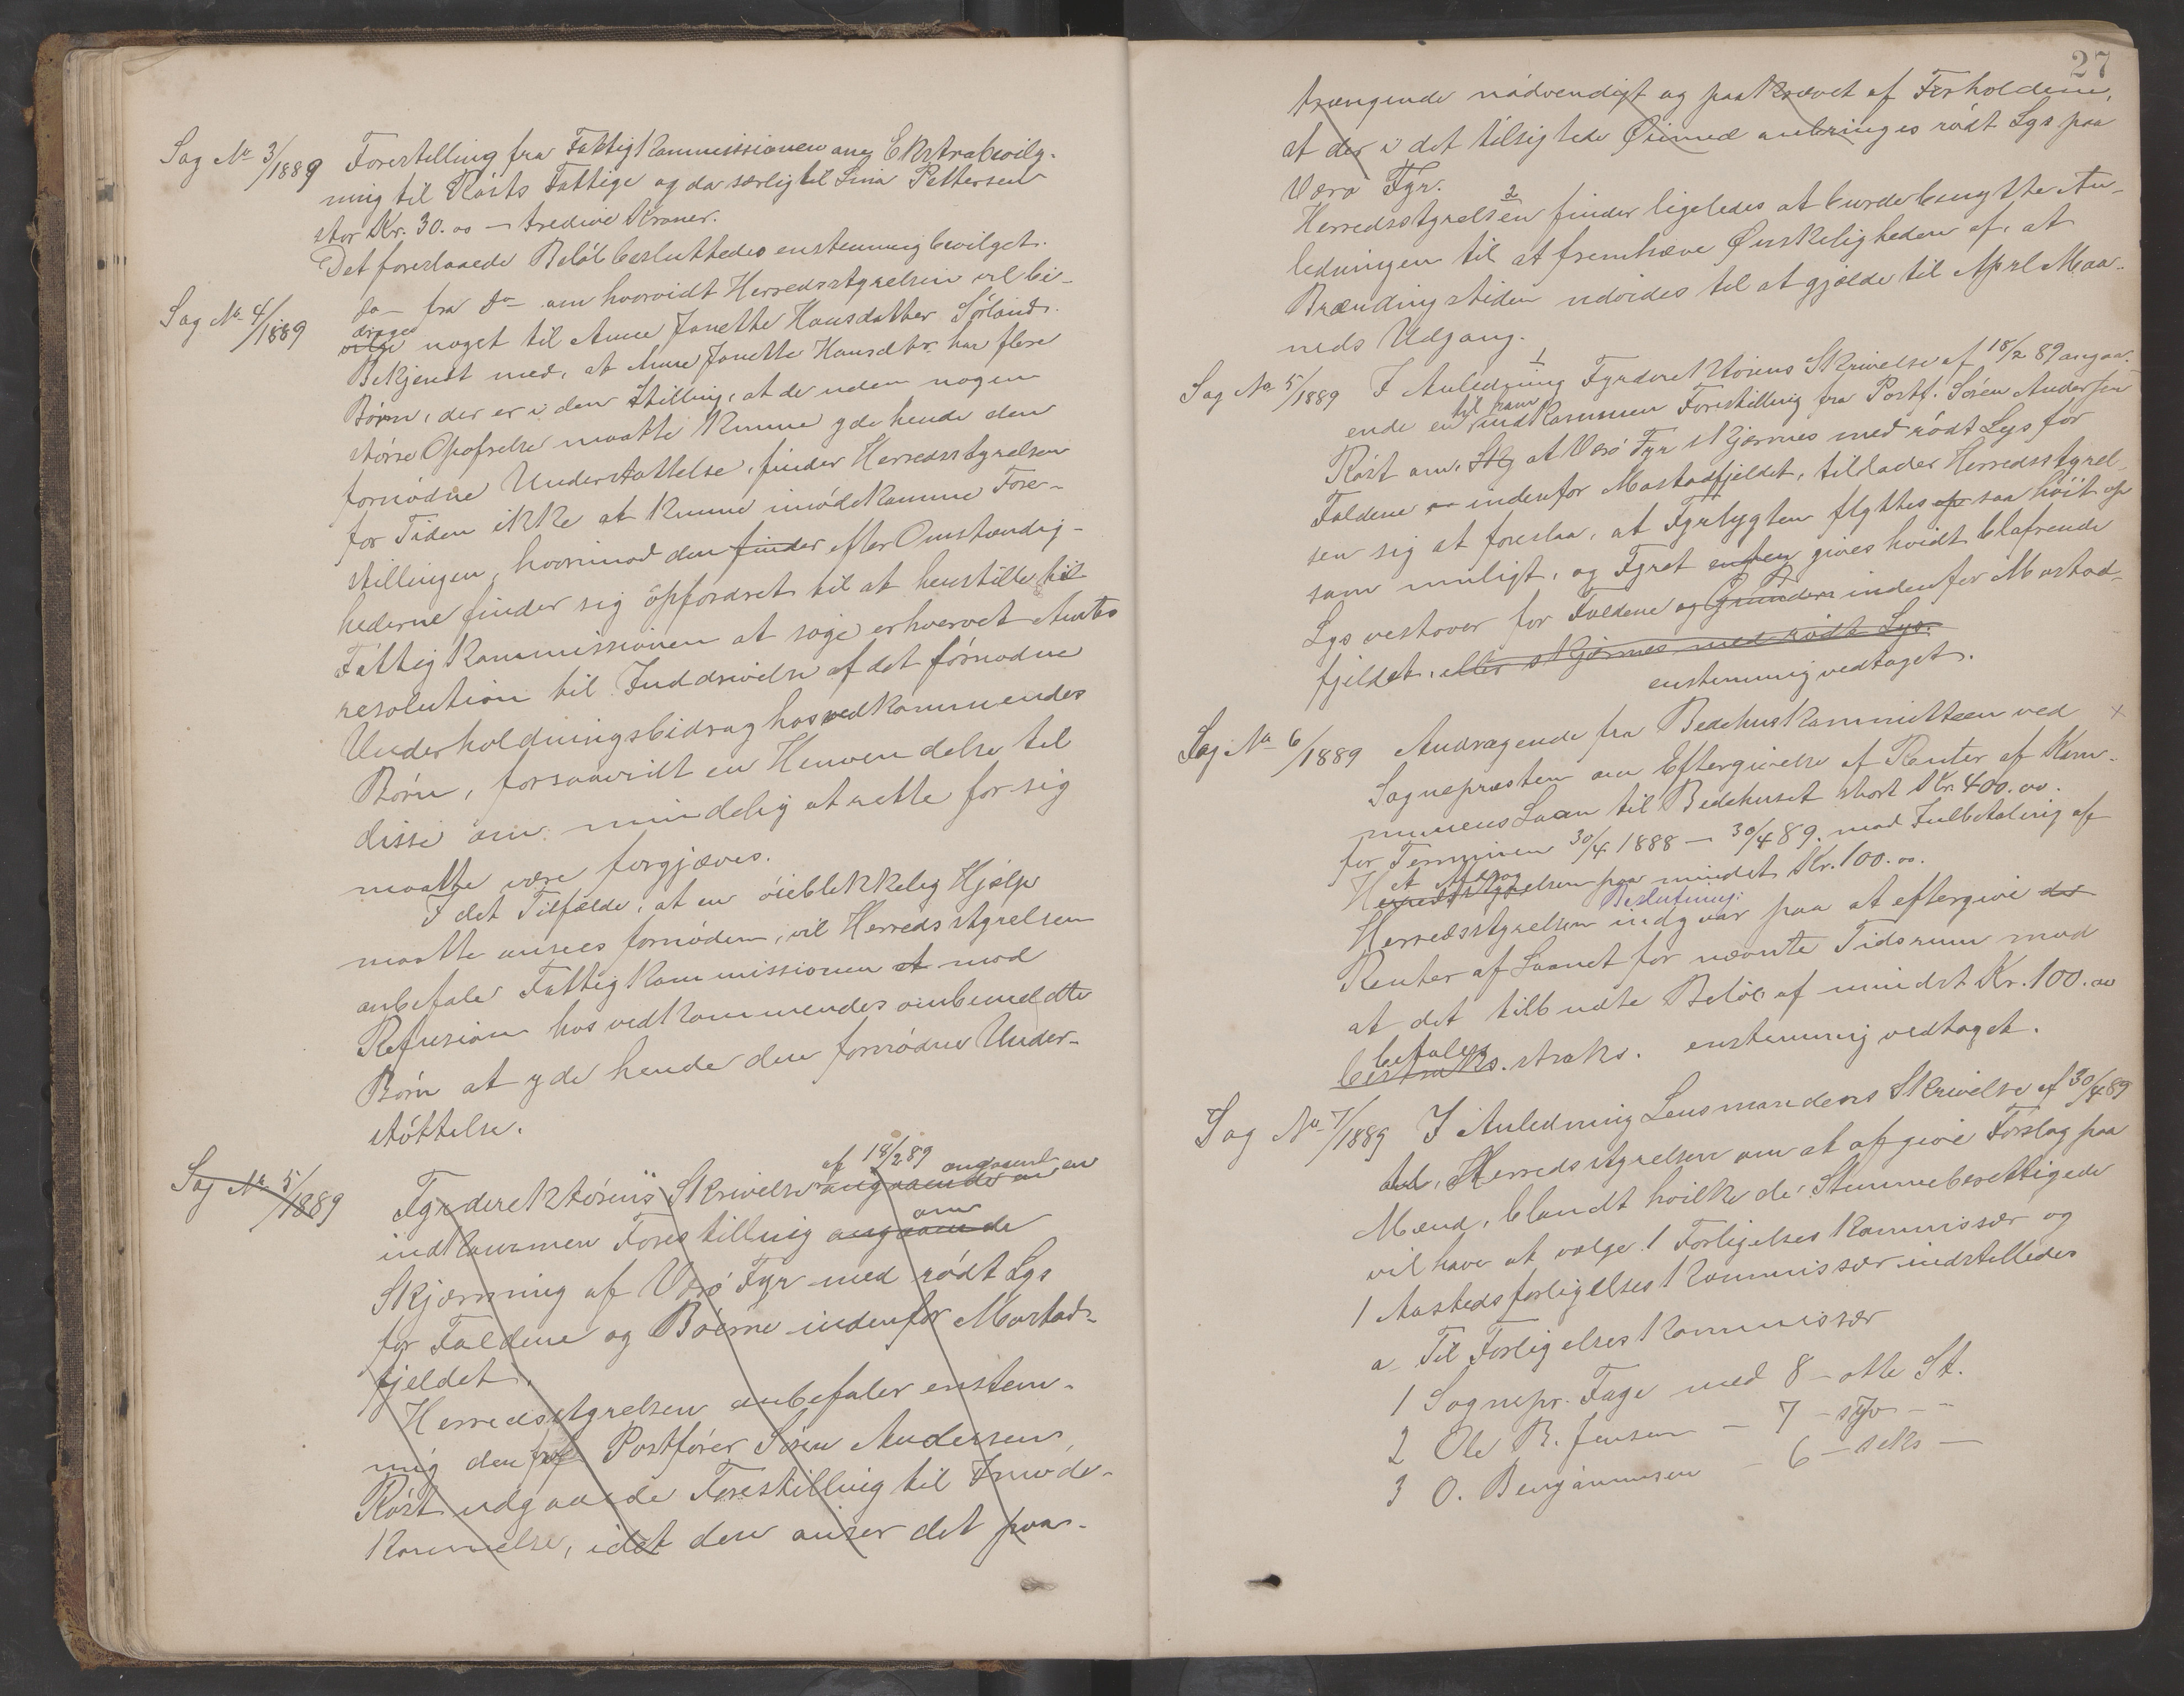 Sag No 3/1889 Forestilling fra Fattigkommissionen ang Ekstrabevilg-
ning til Røsts Fattige og da særlig til Sina Pettersen
stor Kr. 30.00 — tredive Kroner.
Det foreslaaede Beløb besluttedes enstemmig bevilget.
Sag No 4/1889 do — fra do — om hvorvidt Herredsstyrelsen vil bi-
drage
vilge noget til Anne Janette Hansdatter Sørland.
Bekjendt med, at Anne Janette Hansdtr. har flere
Børn, der er i den Stilling, at de uden nogen
større Opofrelse maatte kunne yde hende den
fornødne Understøttelse, finder Herredsstyrelsen
for Tiden ikke at kunne imødekomme Fore-
stillingen, hvorimod den finder efter Omstændig-
hederne finder sig opfordret til at henstille til
Fattigkommissionen at søge erhvervet Amts
resolution til Inddrivelse af det fornødne
Underholdningsbidrag hos vedkommendes
Børn, forsaavidt en Henvendelse til
disse om mindelig at rette for sig
maatte være forgjæves.
I det Tilfælde, at en øieblikkelig Hjælp
maatte ansees fornøden, vil Herredsstyrelsen
anbefale Fattigkommissionen at mod
Refusion hos vedkommendes ombemeldte
Børn at yde hende den fornødne Under-
støttelse.
Sag No 5/1889 Fyrdirektørens Skrivelse af 18/2 89 angaaende en angaaende en
indkommen Forestilling om angaaende
Skjærming af Værø Fyr med rødt Lys
for Faldene og Boerne indenfor Mostad-
fjeldet.
Herredsstyrelsen anbefaler enstem-
mig den fra Postfører Søren Andersen,
Røst udgaaede Forestilling til Imøde-
kommelse, idet den anser det paa-
27
trængende nødvendigt og paakrævet af Forholdene,
at der i det tilsigtede Øiemed anbringes rødt Lys paa
Værø Fyr.
2
Herredsstyrelsen finder ligeledes at burde benytte An-
ledningen til at fremhæve Ønskeligheden af, at
Brændingstiden udvides til at gjælde til April Maa-
neds Udgang.
1
Sag No 5/1889 I Anledning Fyrdirektørens Skrivelse af 18/2 89 angaa-
ende en til ham indkommen Forestilling fra Postf. Søren Andersen
Røst om, at Værø Fyr skjærmes med rødt Lys for
Faldene indenfor Mostadfjeldet, tillader Herredsstyrel-
sen sig at foreslaa, at Fyrlygten flyttes op saa høit op
som muligt, og Fyret enten gives hvidt blafrende
Lys vestover for Faldene og Grunden indenfor Mostad-
fjeldet, eller skjærmes med rødt Lys.
enstemmig vedtaget.
Sag No 6/1889 Andragende fra Bedehuskomitteen ved x
Sognepræsten om Eftergivelse af Renter af Kom-
munens Laan til Bedehuset stort Kr. 400.00.
for Terminen 30/4 1888 — 30/4 89. mod Indbetaling af
et Afdrag
Herredsstyrelsen paa mindst Kr. 100.00.
Beslutning:
Herredsstyrelsen indgaar paa at eftergive de
Renter af Laanet for nævnte Tidsrum mod
at det tilbudte Beløb af mindst Kr. 100.00
betales
straks. enstemmig vedtaget.
Sag No 7/1889 I Anledning Lensmandens Skrivelse af 30/4 89
til Herredsstyrelsen om at afgive Forslag paa
Mænd, blandt hvilke de Stemmeberettigede
vil have at vælge 1 Forligelseskommissær og
1 Aastedsforligelseskommissær indstilledes
a Til Forligelseskommissær
1 Sognepr. Fage med 8 — otte St.
2 Ole B. Jensen — 7 — syv — "
3 O. Benjaminsen — 6 — seks —